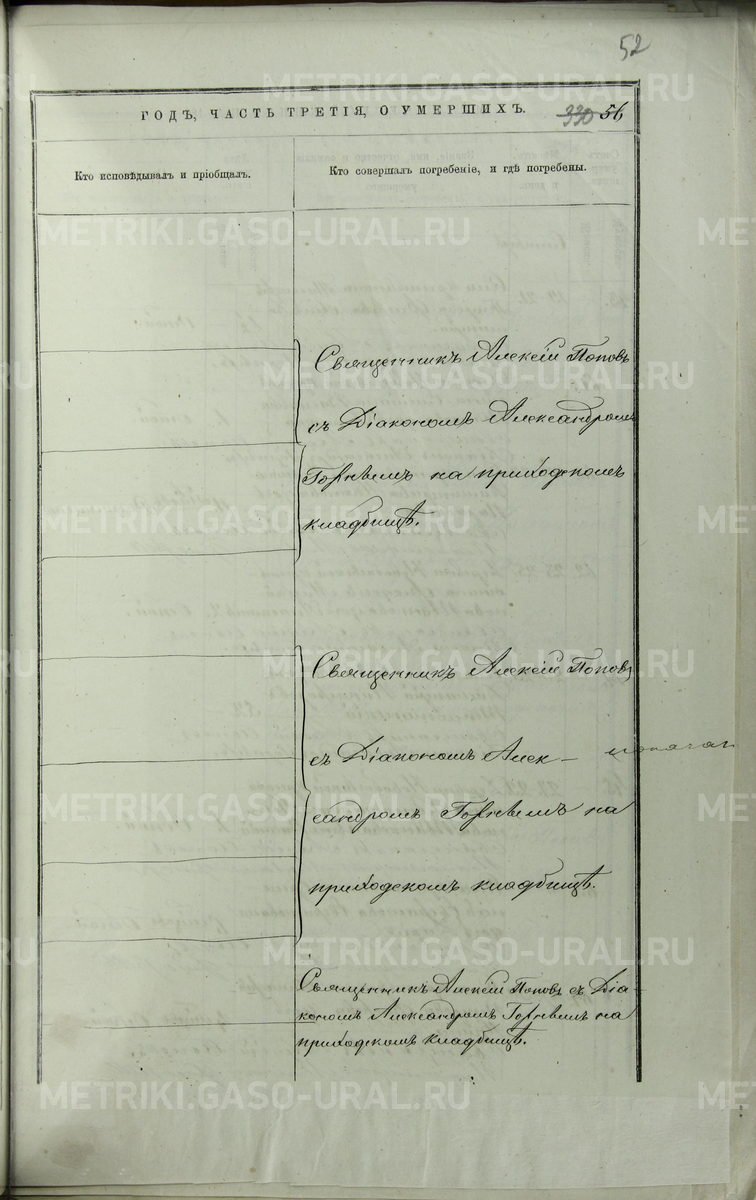 52
ГОДЪ, ЧАСТЬ ТРЕТІЯ, О УМЕРШИХЪ.
330 56
Кто исповѣдывалъ и пріобщалъ.
Кто совершалъ погребеніе, и гдѣ погребены.
Священникъ Алексій Поповъ
съ Діакономъ Александромъ
на приходскомъ
кладбищѣ.
Священникъ Алексій Поповъ
съ Діакономъ Алек-
сандромъ на
приходскомъ кладбищѣ.
Священникъ Алексій Поповъ съ Діа-
кономъ Александромъ на
приходскомъ кладбищѣ.
METRIKI.GASO-URAL.RU